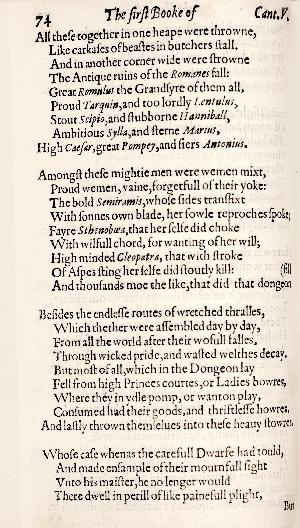 74 The first Booke of Cant.V.
All these together in one heape were throwne,
Like carkases of beastes in butchers stall.
And in another corner wide were strowne
The Antique ruins of the Romanes fall:
Great Romulus the Grandsyre of them all,
Proud Tarquin, and too lordly Lentulus,
Stout Scipio, and stubborne Hanniball,
Ambitious Sylla, and sterne Marius,
High Caesar, great Pompey, and fiers Antonius.
Amongst these mightie men were wemen mixt,
Proud wemen, vaine, forgetfull of their yoke:
The bold Semiramis, whose sides transfixt
With sonnes own blade, her fowle reproches spoke;
Fayre Sthenobœa, that her selfe did choke
With wilfull chord, for wanting of her will;
High minded Cleopatra, that with stroke
Of Aspes sting her selfe did stoutly kill: (fill
And thousands moe the like, that did that dongeon
Besides the endlesse routes of wretched thralles,
Which thether were assembled day by day,
From all the world after their wofull falles,
Through wicked pride, and wasted welthes decay.
But most of all, which in the Dongeon lay
Fell from high Princes courtes, or Ladies bowres,
Where they in ydle pomp, or wanton play,
Consumed had their goods, and thriftlesse howres,
And lastly thrown themselues into these heauy stowres
Whose case whenas the carefull Dwarfe had tould,
And made ensample of their mournfull sight
Vnto his maister, he no lenger would
There dwell in perill of like painefull plight,
But